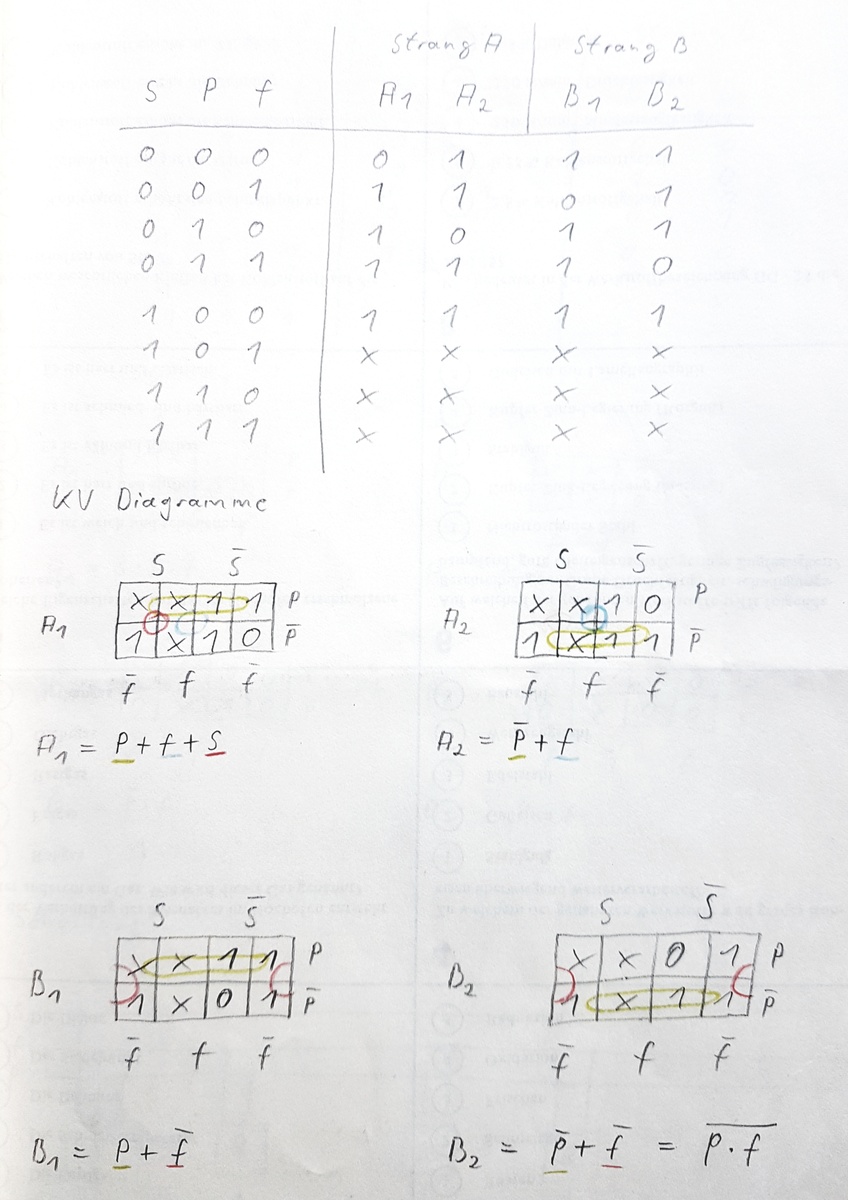 Strang A Strang B
S P f A1 A2 B1 B2
0 0 0 0 1 1 1
0 0 1 1 1 0 1
0 1 0 1 0 1 1
0 1 1 1 1 1 0
1 0 0 1 1 1 1
1 0 1 x x x x
1 1 0 x x x x
1 1 1 x x x x
KV Diagramme
S S̄
A1
x x 1 1 P
1 x 1 0 P̄
f̄ f f̄
A1 = P + f + S
S S̄
A2
x x 1 0 P
1 x 1 1 P̄
f̄ f f̄
A2 = P̄ + f
S S̄
B1
x x 1 1 P
1 x 0 1 P̄
f̄ f f̄
B1 = P + f̄
S S̄
B2
x x 0 1 P
1 x 1 1 P̄
f̄ f f̄
B2 = P̄ + f̄ = P̅ ̅·̅ ̅f̅